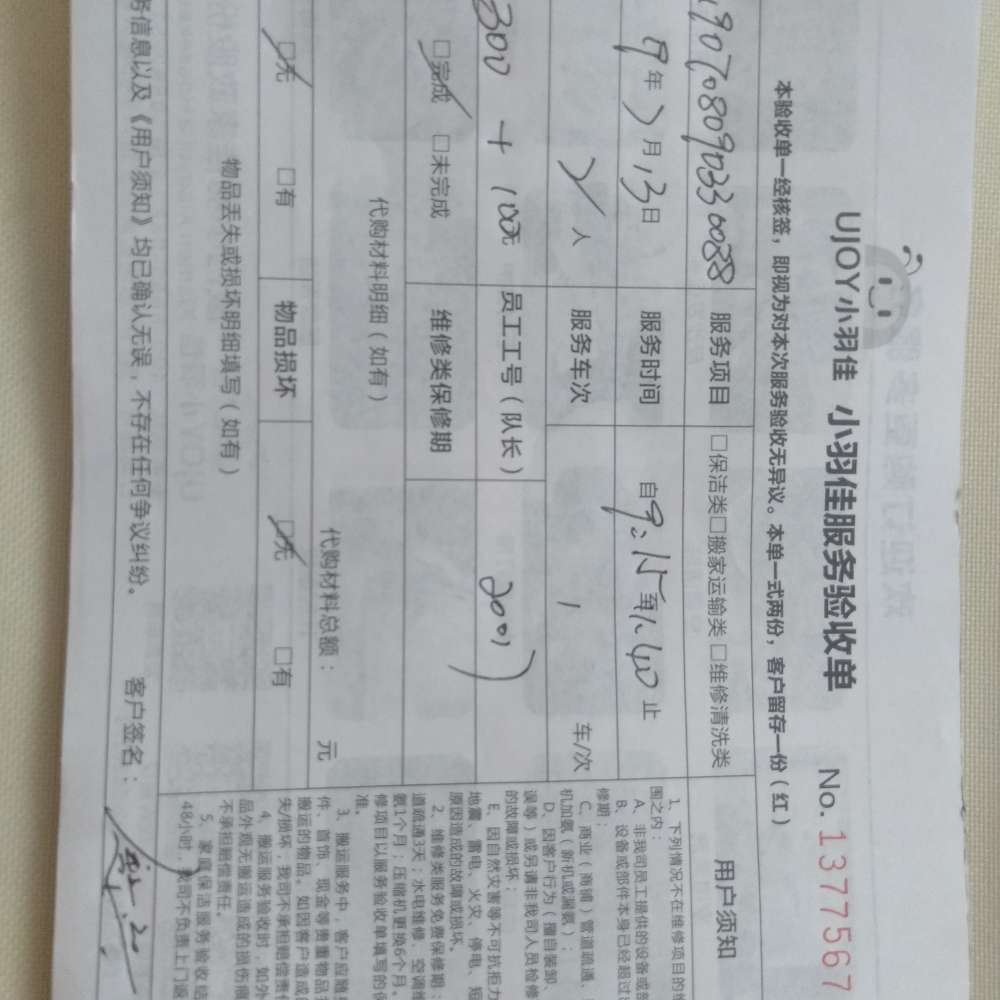 UJOY小羽佳 小羽佳服务验收单 No. 1377567
本验收单一经核签，即视为对本次服务验收无异议。本单一式两份，客户留存一份（红）
服务项目 □保洁类□搬家运输类□维修清洗类
年 月13日 服务时间 自9:15至 40止
人 服务车次 1 车/次
300+100元 员工工号（队长） 2001
□完成 □未完成 维修类保修期
代购材料明细（如有） 代购材料总额： 元
□无 □有 物品损坏 □无 □有
物品丢失或损坏明细填写（如有）
务信息以及《用户须知》均已确认无误，不存在任何争议纠纷。 客户签名：
用户须知
1、下列情况不在维修项目的维
围之内：
A、非我司员工提供的设备或部
B、设备或部件本身已经超过
修期；
C、商业（商铺）管道疏通、
机加氨（新机或漏氨）；
D、因客户行为（擅自装卸、
误等）或另请非我司人员检修
的故障或损坏；
E、因自然灾害等不可抗拒力
地震、雷电、火灾、停电、短
原因造成的故障或损坏。
2、维修类服务免费保修期：
道疏通3天；水电维修、空调维
氨1个月；压缩机更换6个月。
修项目以服务验收单填写的保
准。
3、搬运服务中，客户应随
件、首饰、现金等贵重物品
搬运的物品。如因客户造成
失/损坏；我司不承担赔偿责
4、搬运服务验收时，如外
品外观无搬运造成的损伤痕
不承担赔偿责任。
5、家庭保洁服务验收结
48小时，我司不负责上门返